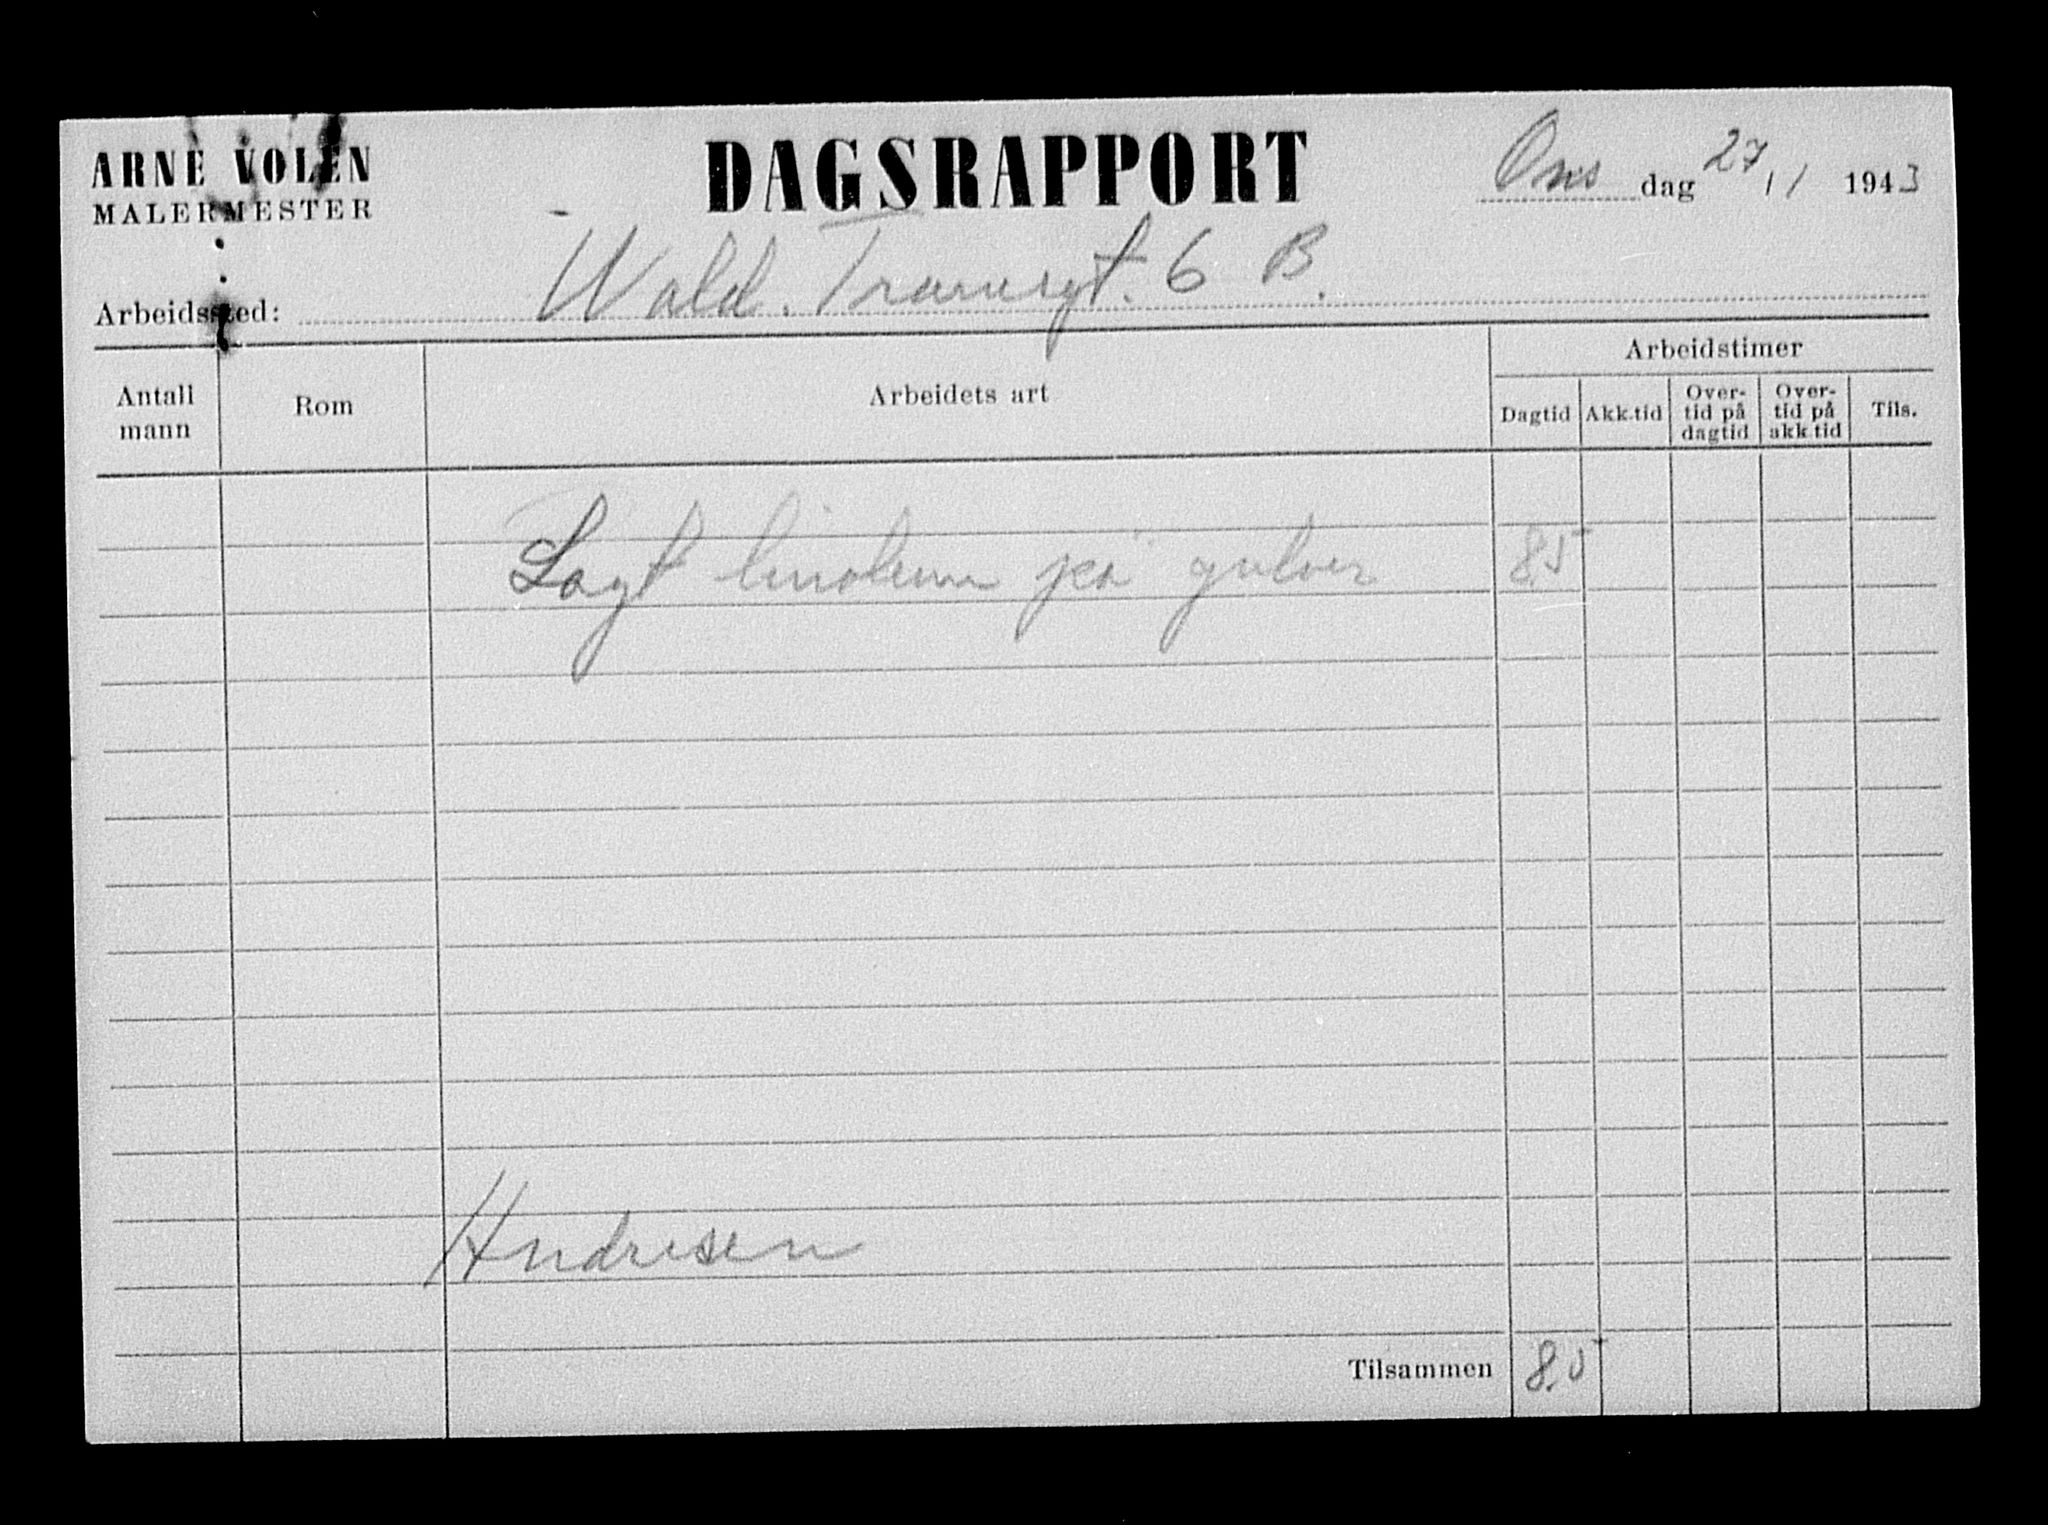 ARNE VOLEN
MALERMESTER
DAGSRAPPORT
Ons dag 27/1 1943
Arbeidssted: Wald. Tranesgt. 6 B.
Antall mann
Rom
Arbeidets art
Arbeidstimer
Dagtid
Akk.tid
Over-
tid på
dagtid
Over-
tid på
akk.tid
Tils.
Lagt linoleum på gulver 8,5
Andresen
Tilsammen 8,5